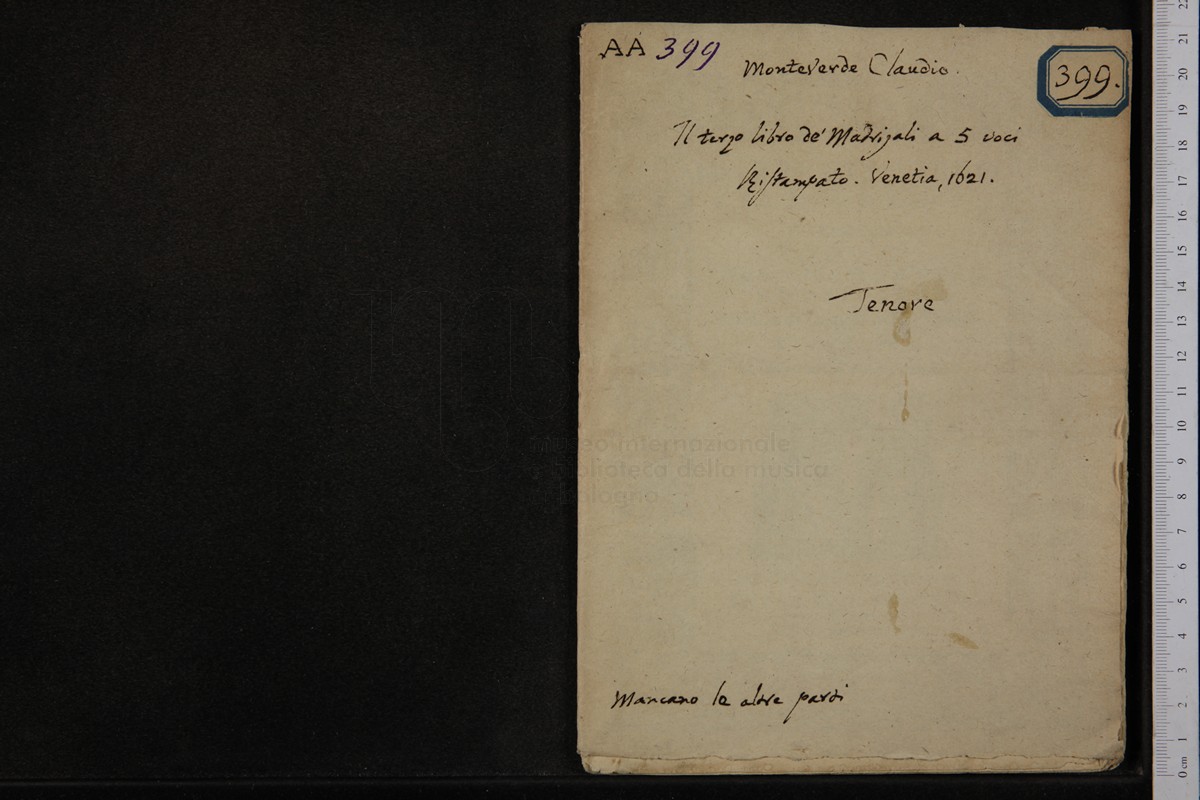 AA 399
399.
Monteverde Claudio.
Il terzo libro de' Madrigali a 5 voci
Ristampato. Venetia, 1621.
Tenore
museo internazionale
biblioteca della musica
bologna
Mancano le altre parti
0 cm 1 2 3 4 5 6 7 8 9 10 11 12 13 14 15 16 17 18 19 20 21 22